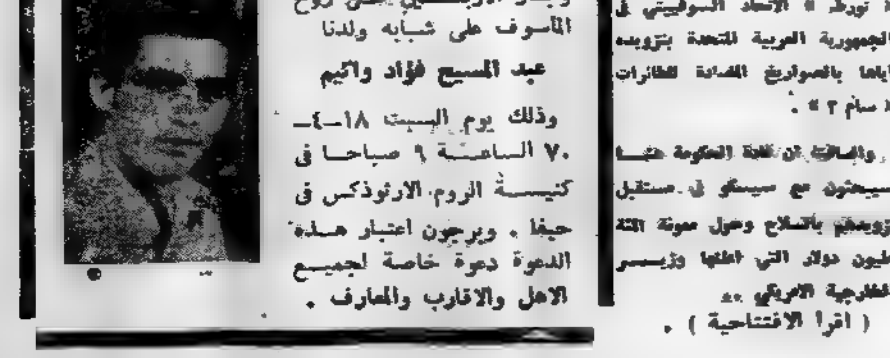 تورط » الاتحاد السوفييتي في
الجمهورية العربية المتحدة بتزويده
اياها بالصواريخ المضادة للطائرات
« سام ٣ » .
سيبحثون مع سيسكو في مستقبل
تزويدهم بالسلاح وحول معونة المئة
مليون دولار التي اعلنها وزيـــر
الخارجية الامريكي ..
( اقرا الافتتاحية ) .
روح
المأسوف على شبابه ولدنا
عبد المسيح فؤاد واكيم
وذلك يوم السبت ١٨ــ٤ــ
٧٠ الساعـــة ٩ صباحـا في
كنيســـة الروم الارثوذكس في
حيفا . ويرجون اعتبار هـــذه
الدعوة دعوة خاصة لجميـــع
الاهل والاقارب والمعارف .